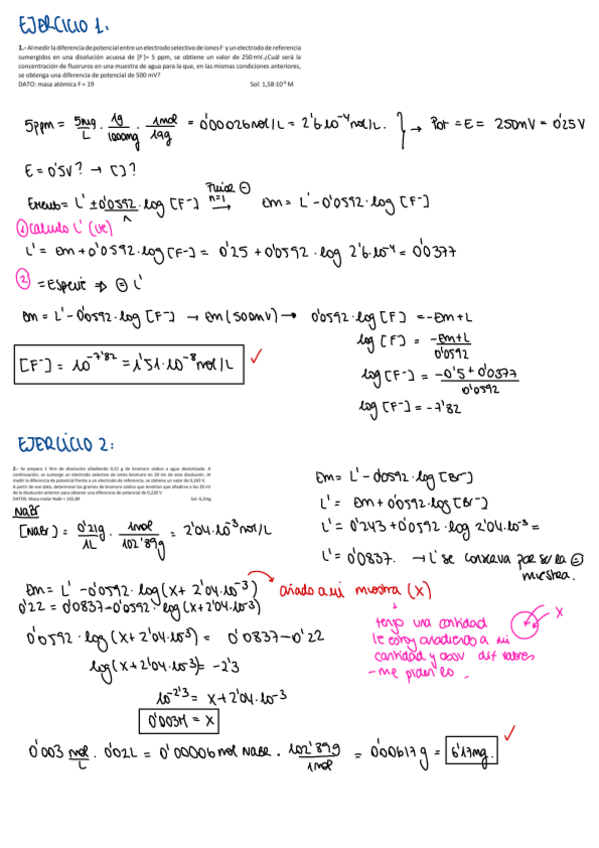 EJERCICIO 1:
1.- Al medir la diferencia de potencial entre un electrodo selectivo de iones F⁻ y un electrodo de referencia
sumergidos en una disolución acuosa de [F⁻]= 5 ppm, se obtiene un valor de 250 mV. ¿Cuál será la
concentración de fluoruros en una muestra de agua para la que, en las mismas condiciones anteriores,
se obtenga una diferencia de potencial de 500 mV?
DATO: masa atómica F = 19 Sol: 1,58·10⁻⁸ M
5ppm = 5mg/L · 1g/1000mg · 1mol/19g = 0'00026mol/L = 2'6·10⁻⁴mol/L. } → Pot = E = 250mV = 0'25V
E = 0'5V? → [ ]?
= L' ± 0'0592/n · log [F⁻] n=1 → Em = L' - 0'0592·log [F⁻]
① calculo L' (cte)
L' = Em + 0'0592·log [F⁻] = 0'25 + 0'0592 · log 2'6·10⁻⁴ = 0'0377
② = especie ⇒ L'
Em = L' - 0'0592·log [F⁻] → Em (500mV) → 0'0592·log [F] = -Em + L
log [F] = -Em+L/0'0592
[F⁻] = 10⁻⁷'⁸² = 1'51·10⁻⁸mol/L ✓
log [F⁻] = -0'5 + 0'0377/0'0592
log [F⁻] = -7'82
EJERCICIO 2:
2.- Se prepara 1 litro de disolución añadiendo 0,21 g de bromuro sódico a agua desionizada. A
continuación, se sumerge un electrodo selectivo de iones bromuro en 20 mL de esta disolución. Al
medir la diferencia de potencial frente a un electrodo de referencia, se obtiene un valor de 0,243 V.
A partir de ese dato, determinar los gramos de bromuro sódico que tendrían que añadirse a los 20 ml
de la disolución anterior para obtener una diferencia de potencial de 0,220 V
DATOS: Masa molar NaBr = 102,89 Sol: 6,2mg
Em = L' - 0'0592·log [Br⁻]
L' = Em + 0'0592·log [Br⁻]
NaBr
[NaBr] = 0'21g/1L · 1mol/102'89g = 2'04·10⁻³mol/L
L' = 0'243 + 0'0592·log 2'04·10⁻³ =
L' = 0'0837. → L' se conserva por ser la =
muestra.
Em = L' - 0'0592·log (x + 2'04·10⁻³) añado a mi muestra (x)
0'22 = 0'0837 - 0'0592· log (x + 2'04·10⁻³)
tengo una cantidad
le estoy añadiendo a mi
cantidad y
x
0'0592 · log (x + 2'04·10⁻³) = 0'0837 - 0'22
- me piden lo
log (x + 2'04·10⁻³) = -2'3
10⁻²'³ = x + 2'04·10⁻³
0'003M = x
0'003 mol/L · 0'02L = 0'00006mol NaBr · 102'89g/1mol = 0'00617g = 6'17mg. ✓